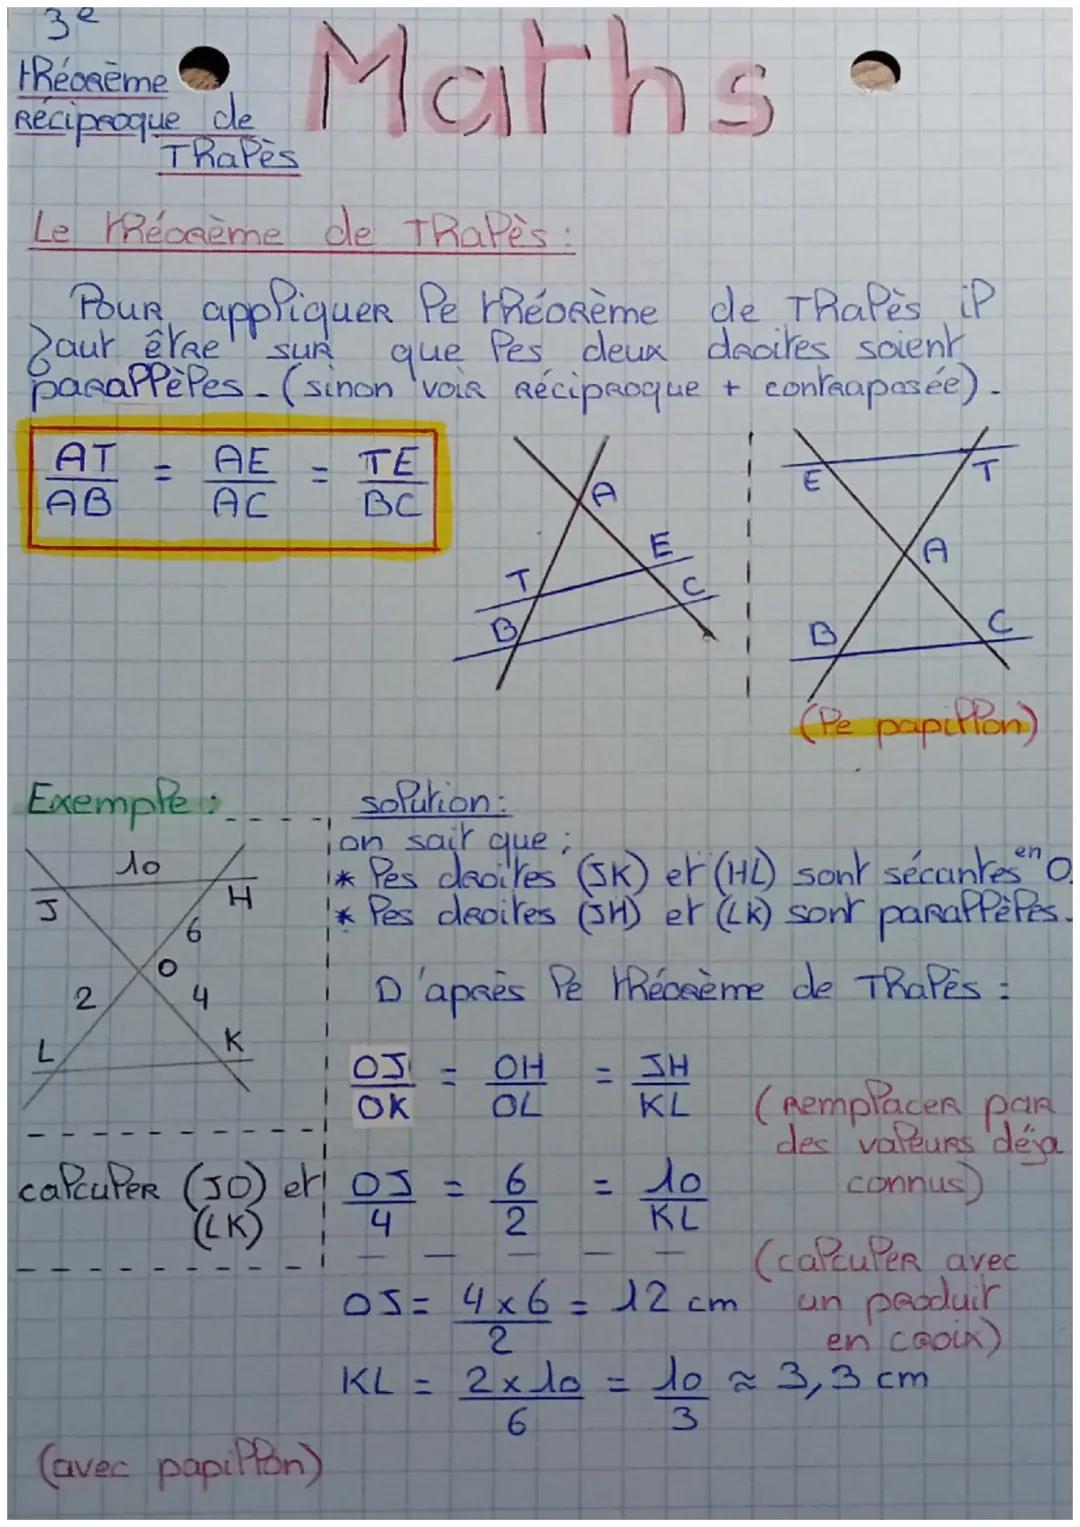 3e
théorème
réciproque de
Thalès
Maths
Le théorème de Thalès :
Pour appliquer le théorème de Thalès il
faut être sur que les deux droites soient
parallèles. (sinon voir réciproque + contraposée).
AT/AB = AE/AC = TE/BC
A
E
T
C
B
E
T
A
B
C
(le papillon)
Exemple :
10
J
H
6
O
2
4
L
K
calculer (JO) et
(LK)
solution :
on sait que :
* les droites (JK) et (HL) sont sécantes en O.
* les droites (JH) et (LK) sont parallèles.
D'après le théorème de Thalès :
OJ/OK = OH/OL = JH/KL
(remplacer par
des valeurs déja
connus)
OJ/4 = 6/2 = 10/KL
(calculer avec
un produit
en croix)
OJ = 4x6/2 = 12 cm
KL = 2x10/6 = 10/3 ≈ 3,3 cm
(avec papillon)